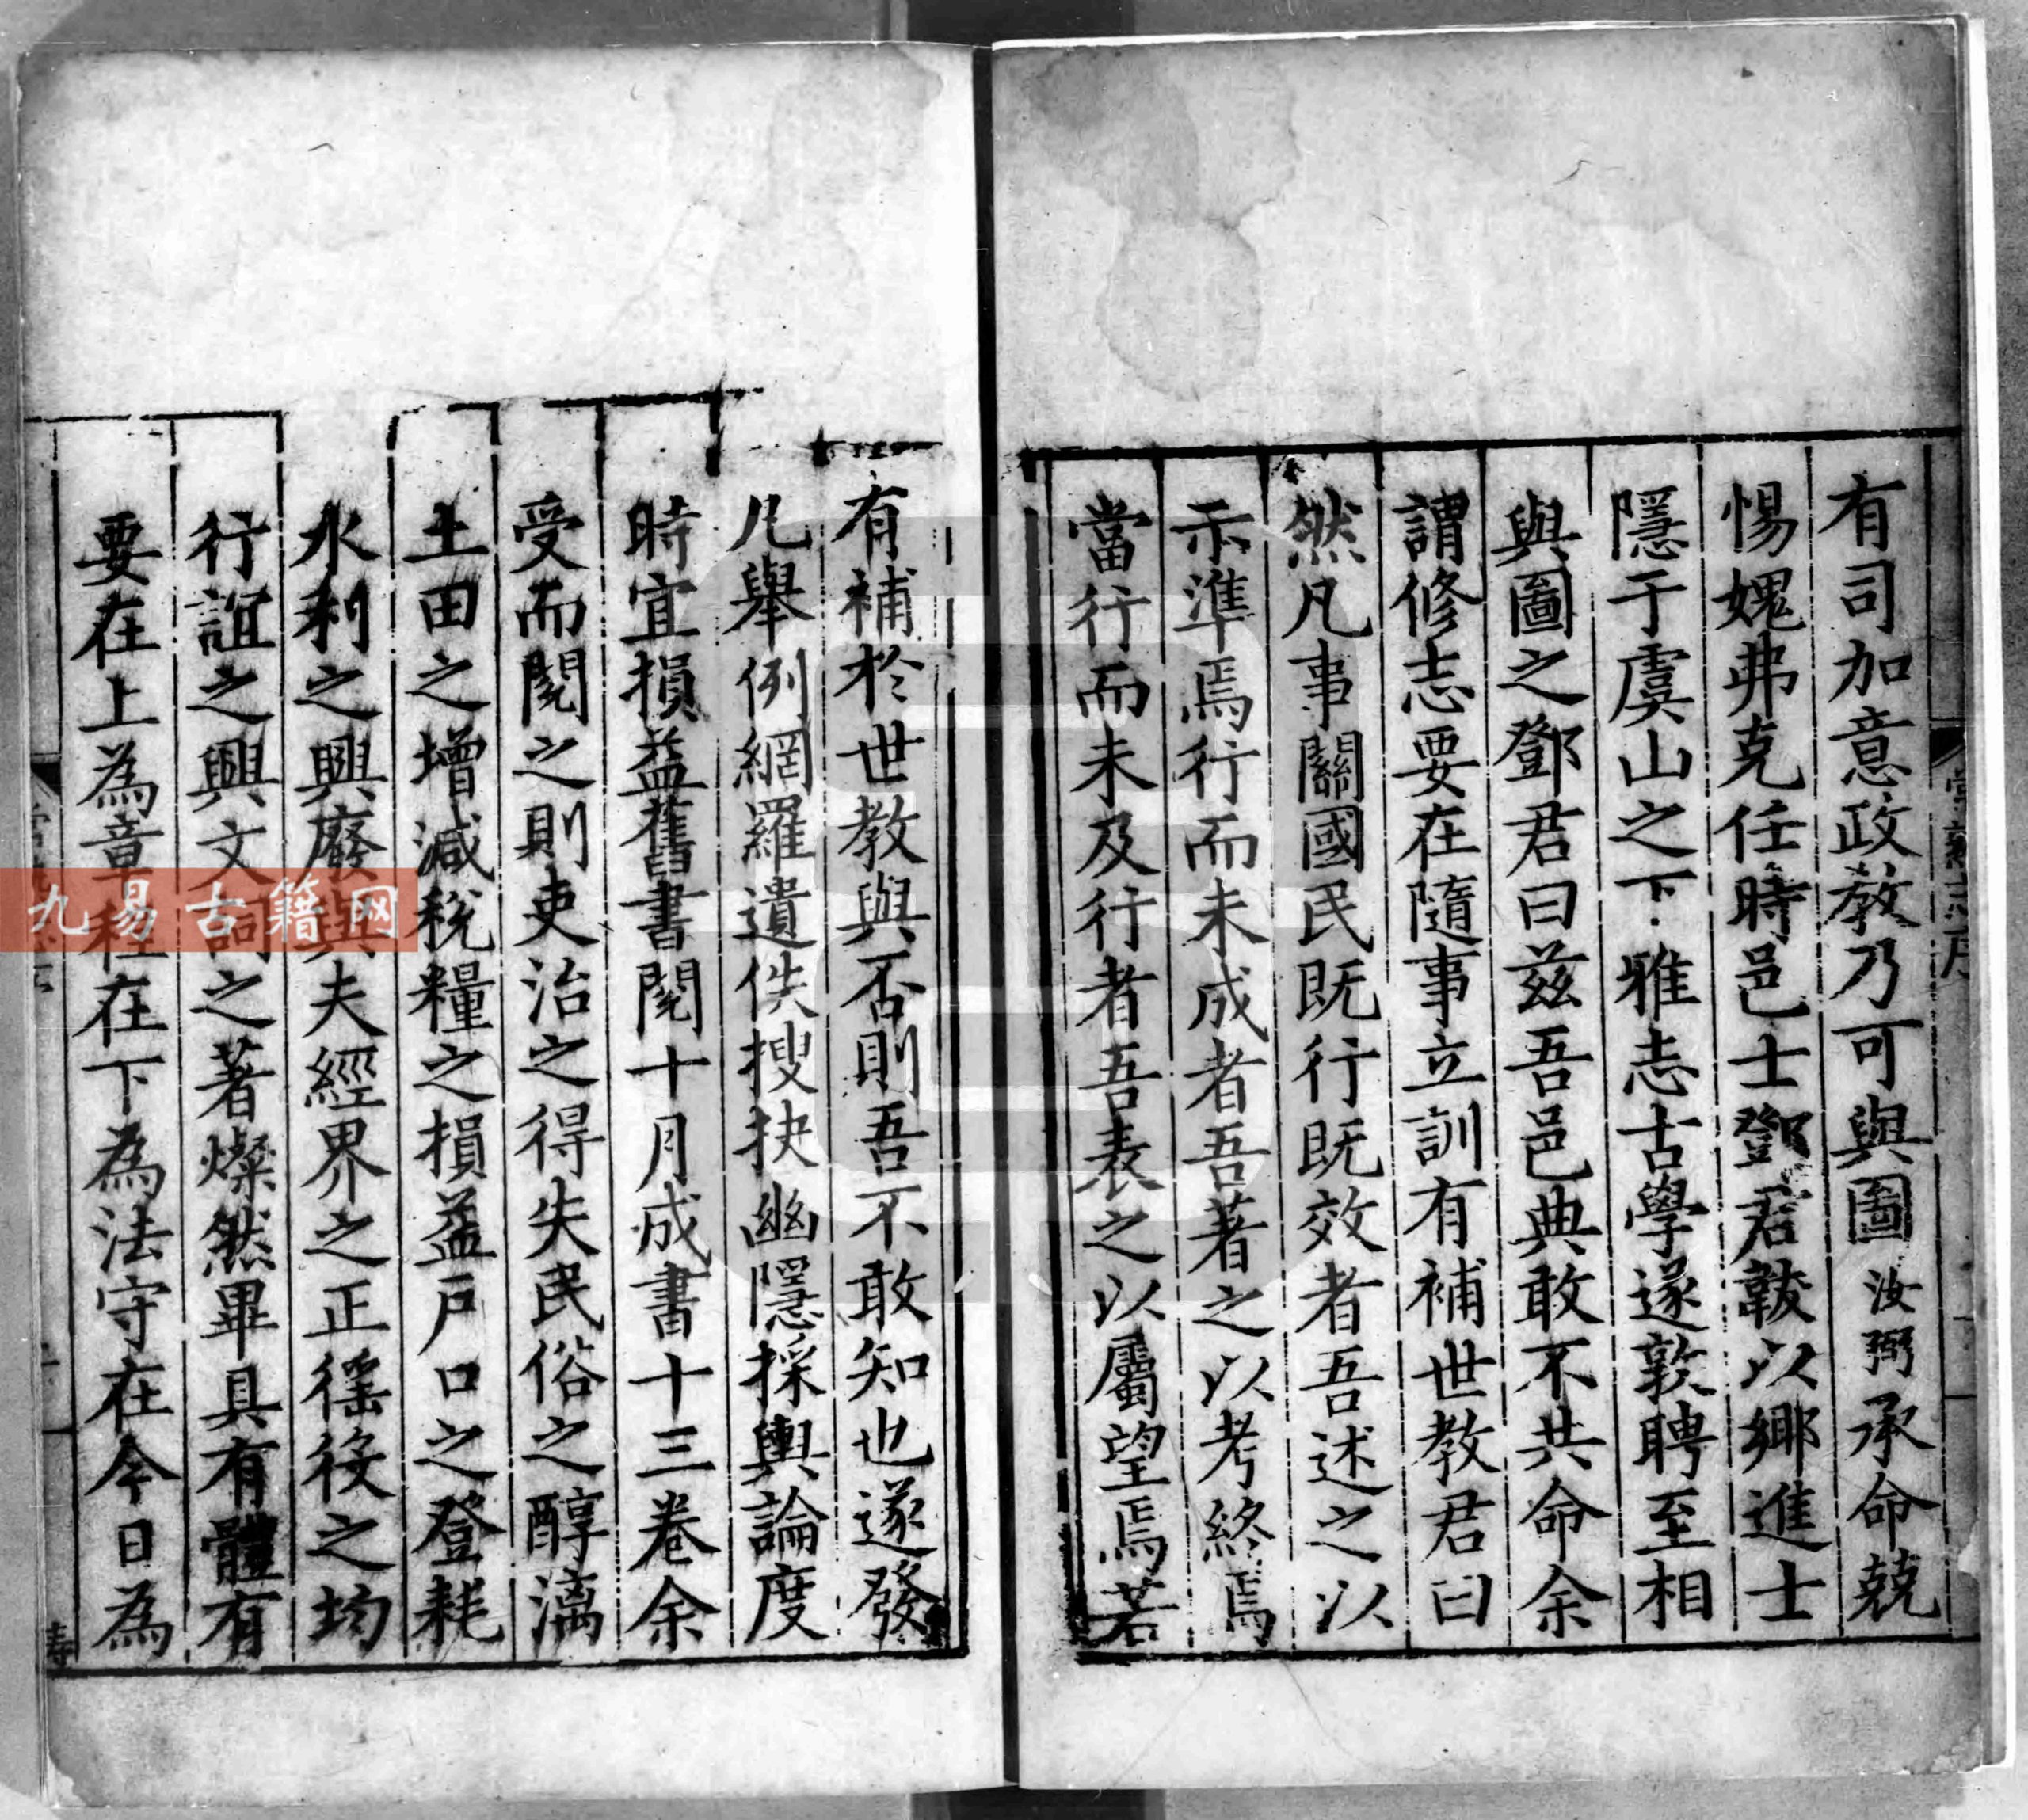 有司加意政敎乃可與圖汝弼承命兢
惕媿弗克任時邑士鄧君韍以鄉進士
隱于虞山之下雅志古學遂敦聘至相
與圖之鄧君曰兹吾邑典敢不共命余
謂修志要在隨事立訓有補世教君曰
然凡事關國民既行既效者吾述之以
示準焉行而未成者吾著之以考終焉
當行而未及行者吾表之以屬望焉若
有補於世教與否則吾不敢知也遂發
凡舉例網羅遺佚搜抉幽隱採輿論度
時宜損益舊書閱十月成書十三卷余
受而閱之則吏治之得失民俗之醇漓
土田之增減稅糧之損益戶口之登耗
水利之興廢與夫經界之正徭役之均
行誼之興文詞之著燦然畢具有體有
要在上為章程在下為法守在今日為
常熟志序
九易古籍网